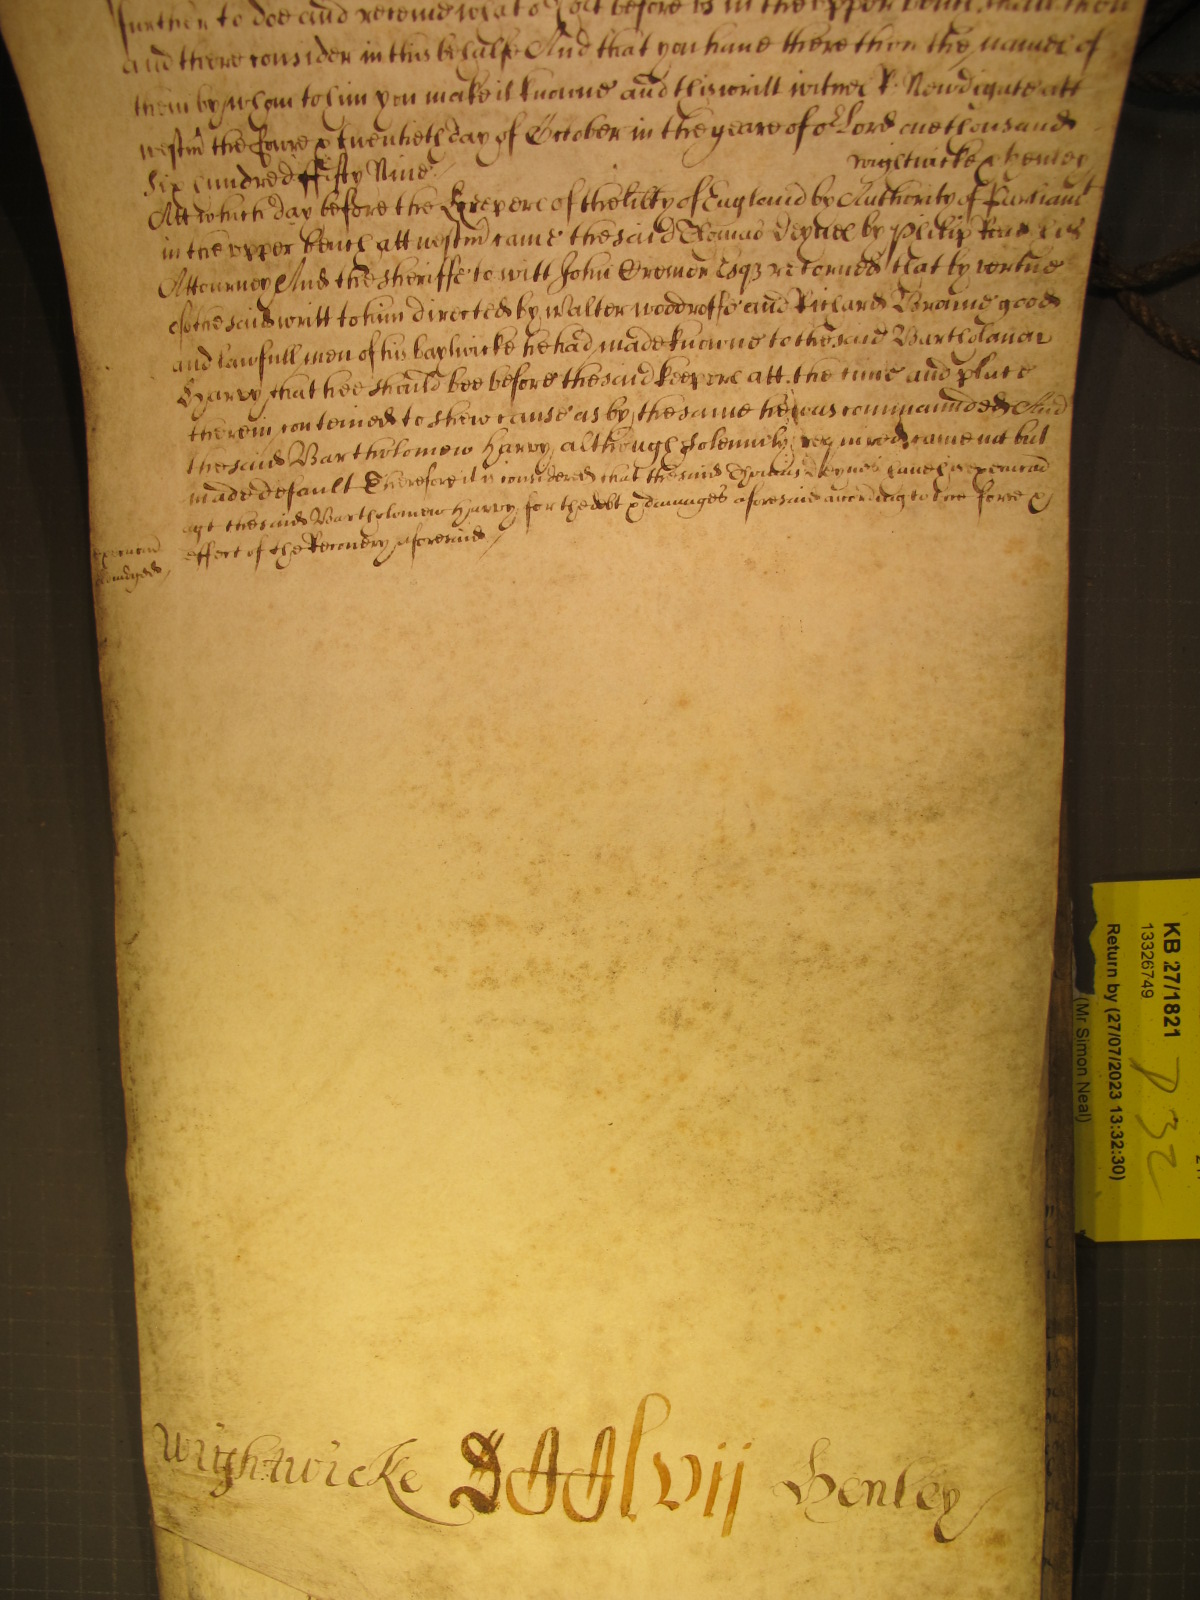 further to doe and receive what o{r} Co{r}t before us in the upper bench shall then
and there consider in this behalfe And that you have there then the names of
them by whom to him you make it knowne and this writt witnes R: Newdigate att
westm{r} the foure & twentieth day of October in the yeare of o{r} Lord one thousand
Six hundred ffifty Nine
Wightwicke & Henley
Att which day before the Keepers of the lib{ty} of England by Authority of Parliam{t}
in the upper bench att westm{r} came the said Thomas by Philip his
Attourney And the sheriffe to witt John Esq{r} retorned that by vertue
of the said writt to him directed by Walter Woodroffe and Richard Browne good
and lawfull men of his baylwicke he had made knowne to the said Bartholomew
Harvy that hee should bee before the said keepers att the time and place
therein conteined to shew cause as by the same he was commannded And
the said Bartholomew Harvy although solemnely required came not but
made default Therefore it is considered that the said Thomas have execucon
ag{t} the said Bartholomew Harvy for the debt & damages aforesaid according to the force &
effect of the Recovery aforesaid
execucon
Wightwicke DCClvii Henley
KB 27/1821
13326749
Return by (27/07/2023 13:32:30)
(Mr Simon Neal)